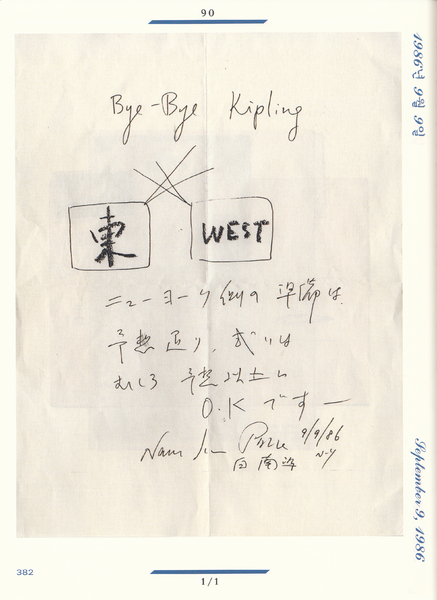 90
1986년 9월 9일
Bye-Bye Kipling
東 WEST
ニューヨーク側の準備は、
予想通り、或いは
むしろ予想以上に
O.Kです—
Nam June Paik 9/9/86
白南準 NY
September 9, 1986
382
1/1